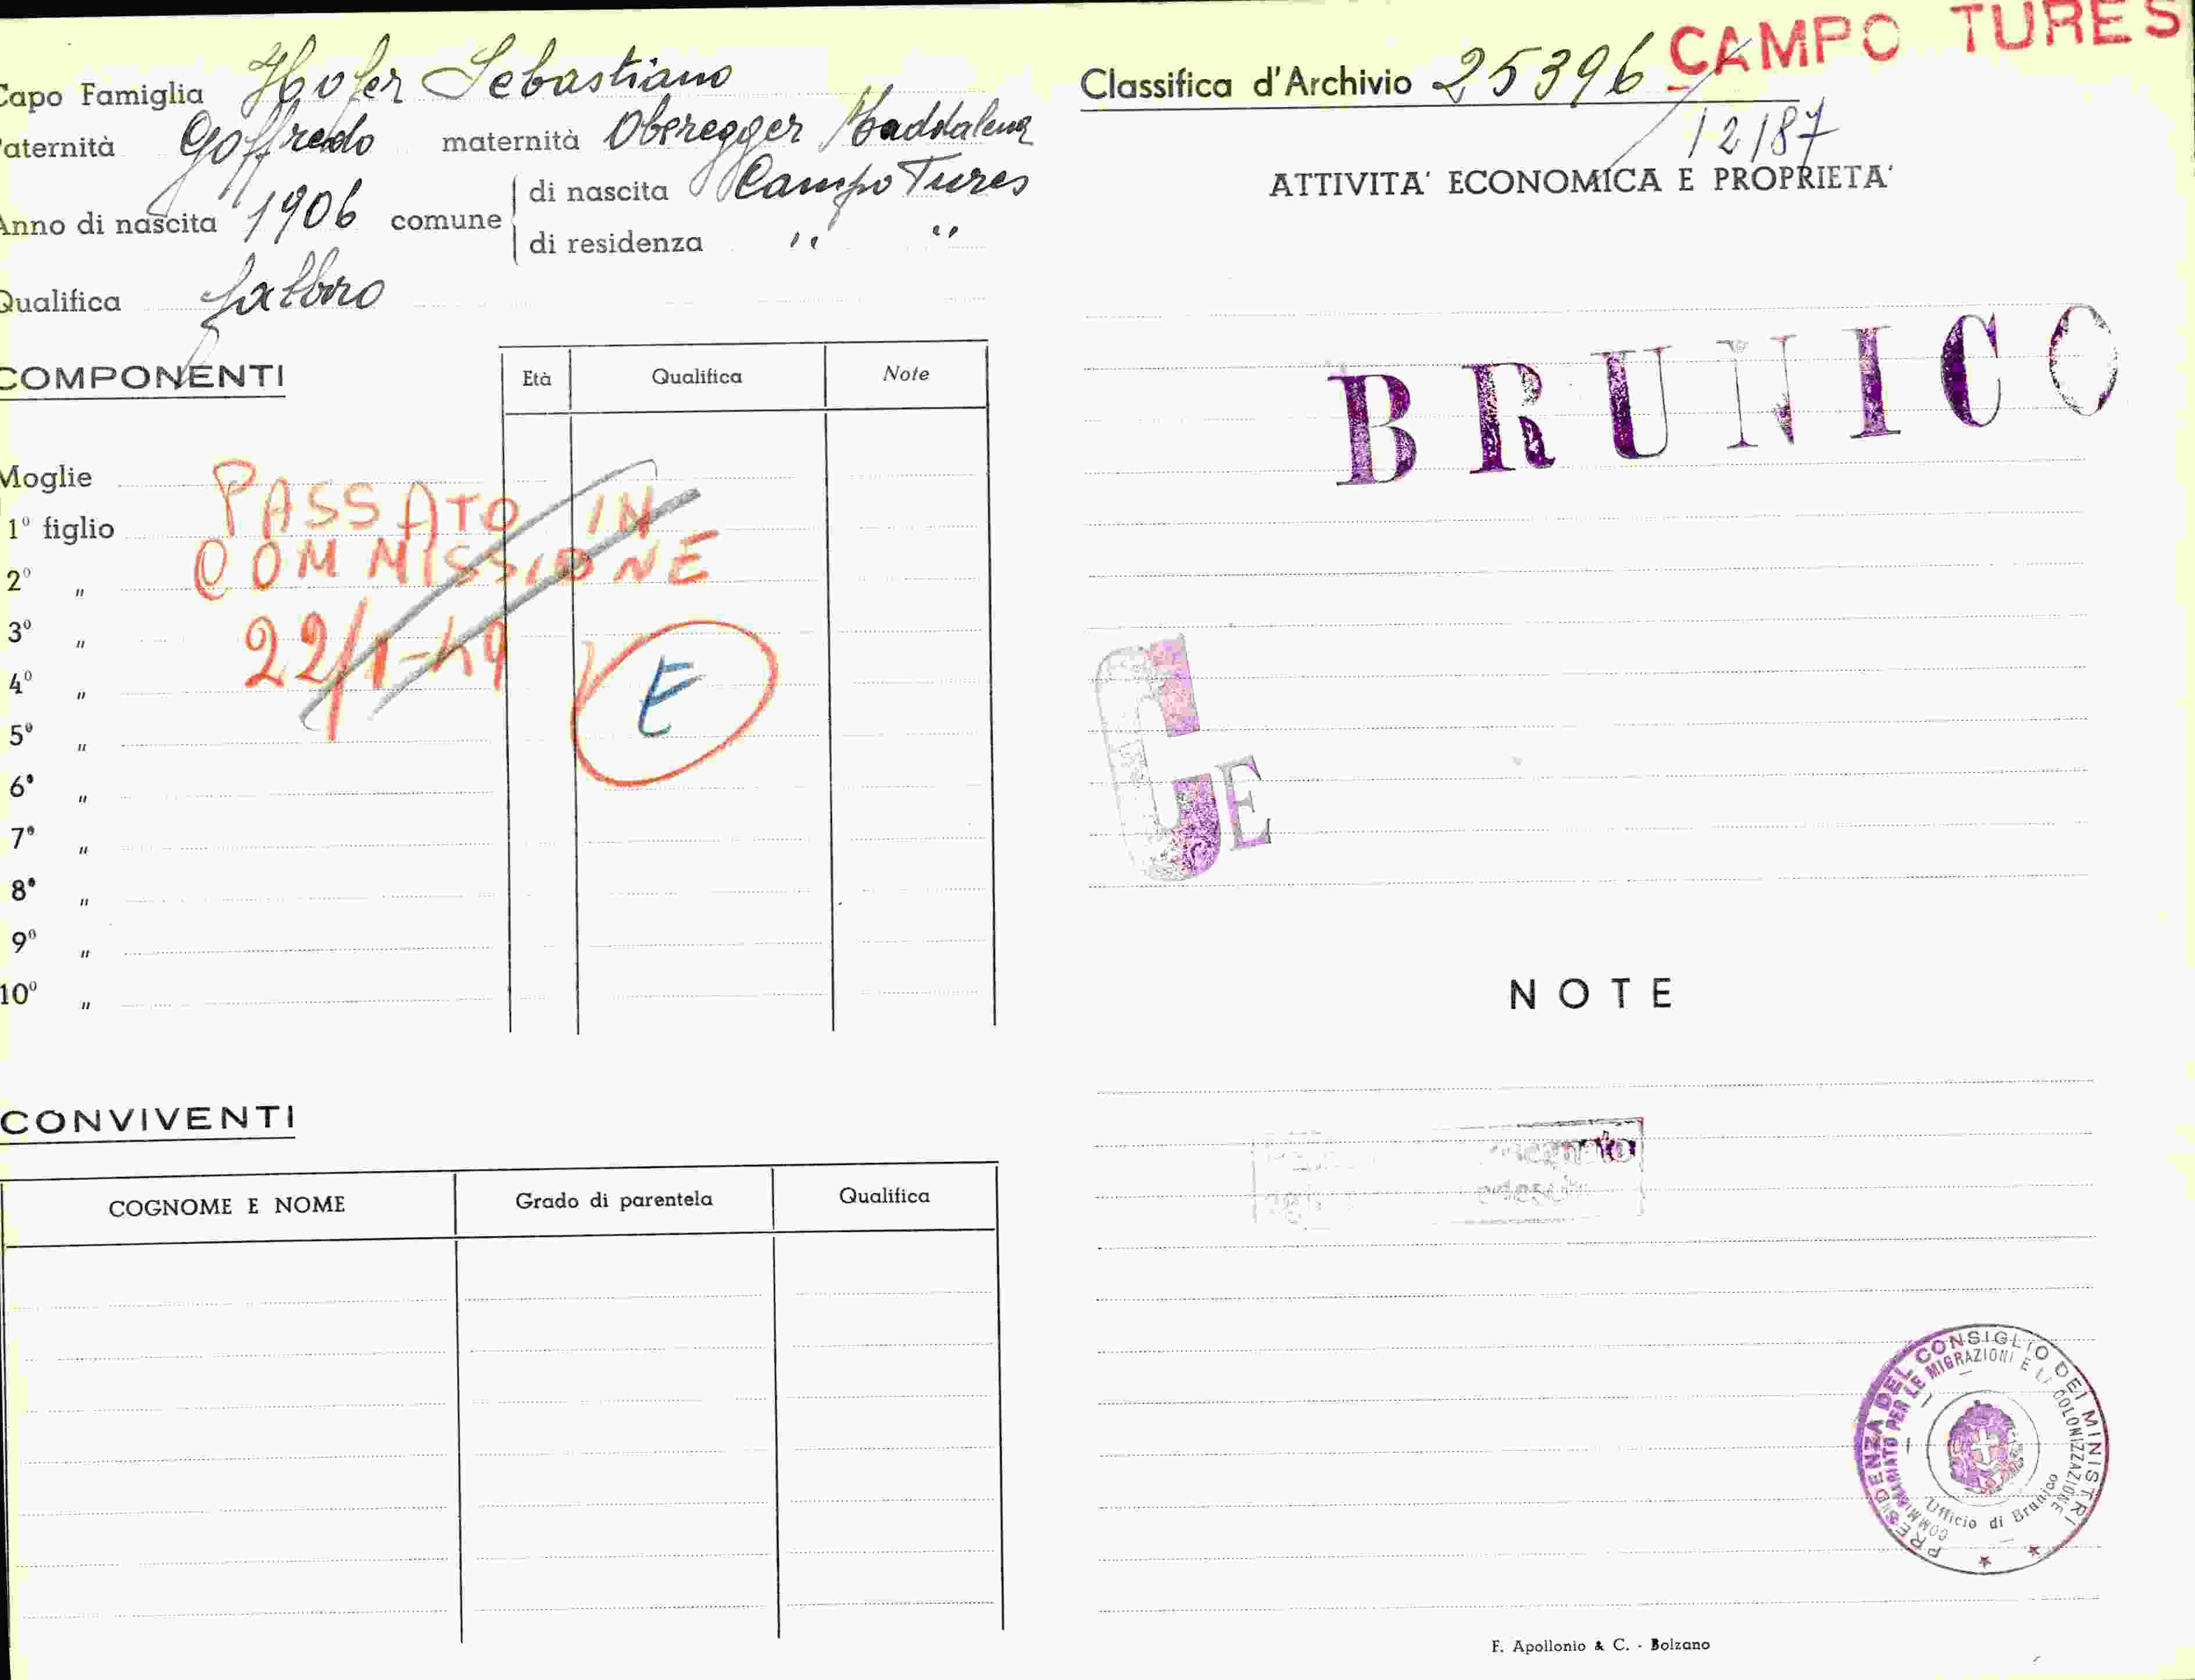 Capo Famiglia Hofer Sebastiano
Paternità Goffredo maternità Oberegger Maddalena
Anno di nascita 1906 comune di nascita Campo Tures
di residenza " "
Qualifica fabbro
COMPONENTI
Età Qualifica Note
Moglie
1º figlio
2º "
3º "
4º "
5º "
6º "
7º "
8º "
9º "
10º "
PASSATO IN
COMMISSIONE
22/1-49
E
CONVIVENTI
COGNOME E NOME Grado di parentela Qualifica
CAMPO TURES
Classifica d'Archivio 25396
12187
ATTIVITA' ECONOMICA E PROPRIETA'
BRUNICO
G E
NOTE
PRESIDENZA DEL CONSIGLIO DEI MINISTRI
COMMISSARIATO PER LE MIGRAZIONI E LA COLONIZZAZIONE
Ufficio di Brunico
F. Apollonio & C. - Bolzano